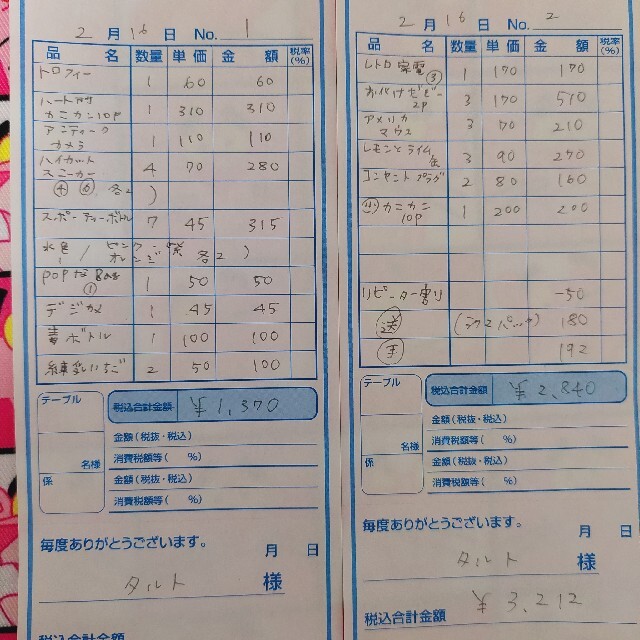 2月16日 No. 1
品名 数量 単価 金額 税率(%)
トロフィー 1 60 60
ハート付
カニカン10P 1 310 310
アンティーク
カメラ 1 110 110
ハイカット
スニーカー 4 70 280
各2 )
スポーティーボトル 7 45 315
水色 / ピンク 紫
1 オレンジ 各2 )
POPな
① 1 50 50
デジカメ 1 45 45
毒ボトル 1 100 100
練乳いちご 2 50 100
テーブル
税込合計金額 ¥1,370
金額(税抜・税込)
名様
消費税額等( %)
係
金額(税抜・税込)
消費税額等( %)
毎度ありがとうございます。
月 日
タルト 様
税込合計金額
2月16日 No. 2
品名 数量 単価 金額 税率(%)
レトロ家電③ 1 170 170
おばけベビー
2P 3 170 510
アメリカ
マウス 3 70 210
レモンとライム
缶 3 90 270
コンセントプラグ 2 80 160
カニカン
10P 1 200 200
リピーター割り -50
送 (クリックパック) 180
手 192
テーブル
税込合計金額 ¥2,840
金額(税抜・税込)
名様
消費税額等( %)
係
金額(税抜・税込)
消費税額等( %)
毎度ありがとうございます。
月 日
タルト 様
税込合計金額 ¥3,212